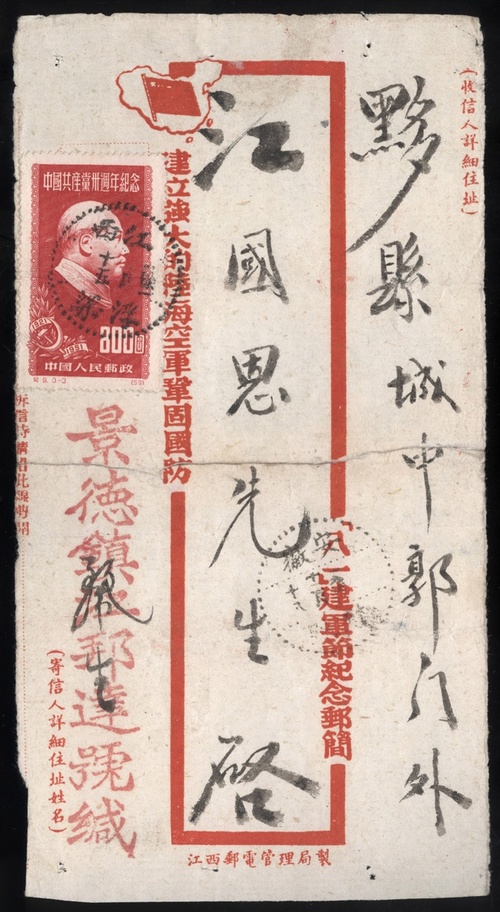 （收信人詳細住址）
黟縣城中郭门外
江國恩先生啓
「八一」建軍節紀念郵簡
建立強大的陸海空軍鞏固國防
中國共產黨卅週年紀念
1921
1951
800圓
中國人民郵政
紀9.3-3
江西
安徽
景德鎮
郵達號緘
（寄信人詳細住址姓名）
江西郵電管理局製